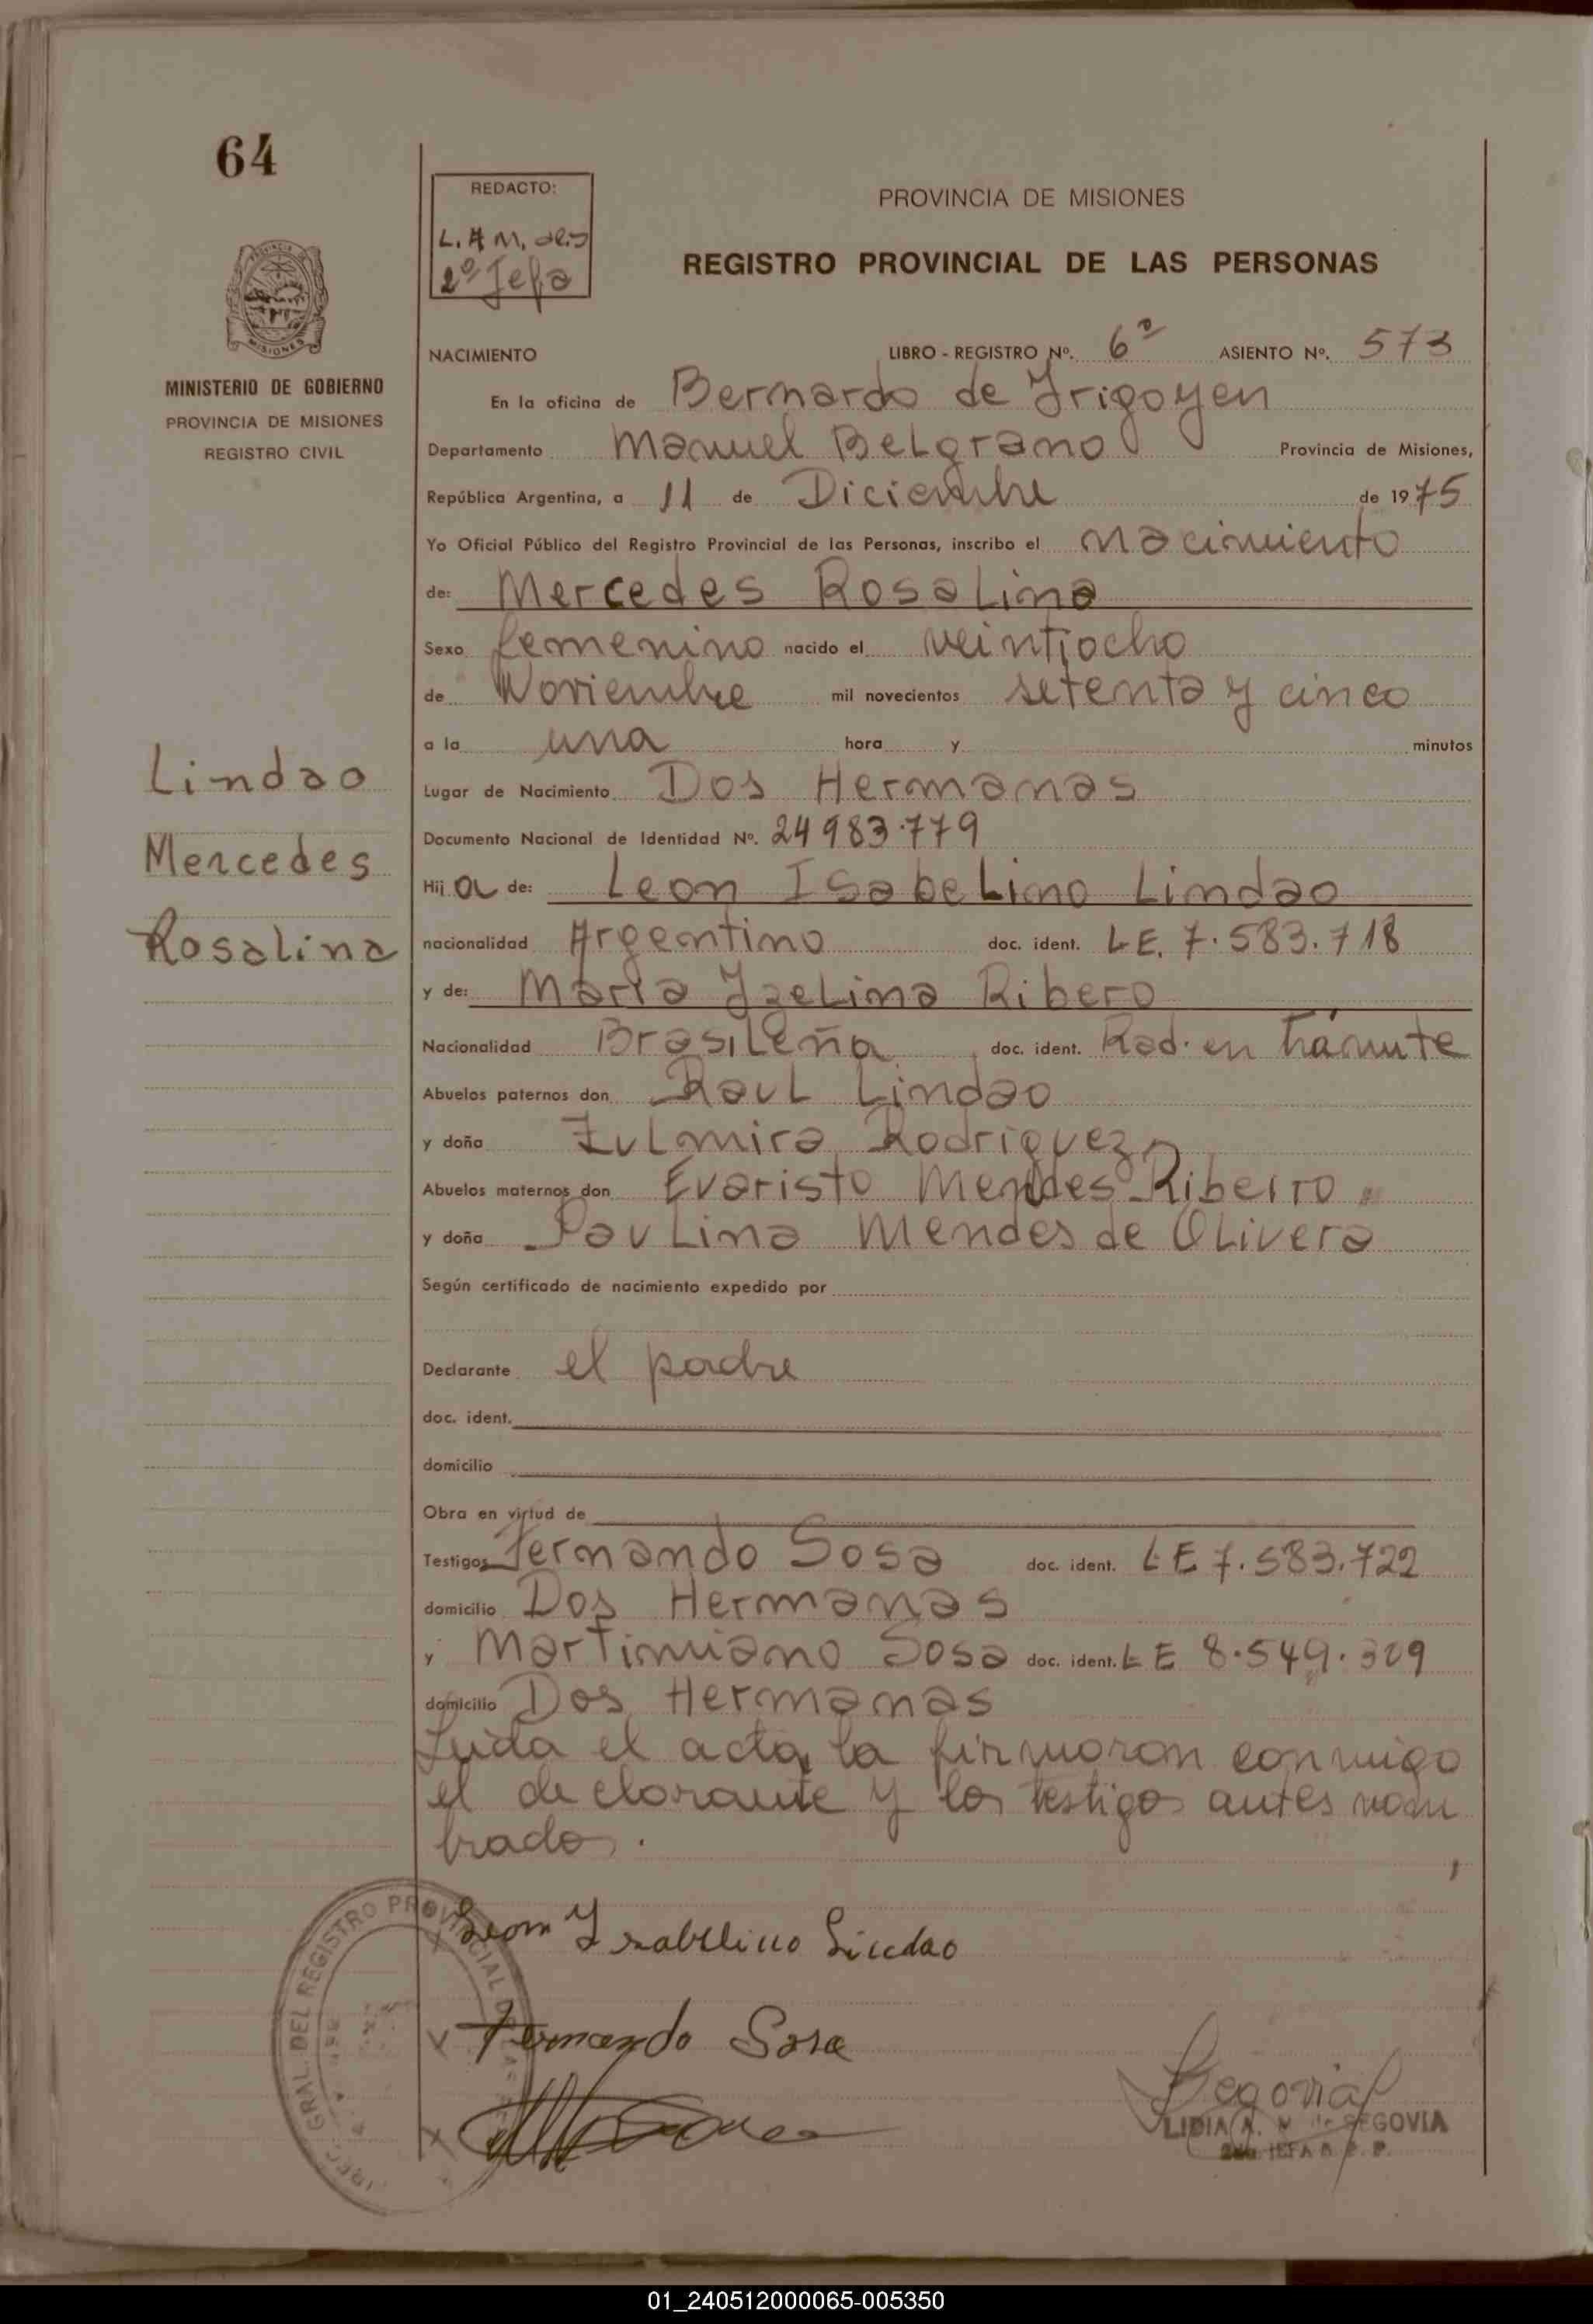 64
REDACTO:
L. A M. de S
2º Jefa
PROVINCIA DE MISIONES
REGISTRO PROVINCIAL DE LAS PERSONAS
MISIONES
MINISTERIO DE GOBIERNO
PROVINCIA DE MISIONES
REGISTRO CIVIL
NACIMIENTO LIBRO - REGISTRO Nº. 6º ASIENTO Nº. 573
En la oficina de Bernardo de Irigoyen
Departamento Manuel Belgrano Provincia de Misiones,
República Argentina, a 11 de Diciembre de 1975
Yo Oficial Público del Registro Provincial de las Personas, inscribo el nacimiento
de: Mercedes Rosalina
Sexo femenino nacido el veintiocho
de Noviembre mil novecientos setenta y cinco
a la una hora y minutos
Lugar de Nacimiento Dos Hermanas
Documento Nacional de Identidad Nº. 24983.779
Hija de: Leon Isabelino Lindao
nacionalidad Argentino doc. ident. LE. 7.583.718
y de: Maria Izelina Ribero
Nacionalidad Brasileña doc. ident. Rad. en trámite
Abuelos paternos don Raul Lindao
y doña Zulmira Rodriguez
Abuelos maternos don Evaristo Mendes Ribeiro
y doña Paulina Mendes de Olivera
Según certificado de nacimiento expedido por
Declarante el padre
doc. ident.
domicilio
Obra en virtud de
Testigos Fernando Sosa doc. ident. LE 7.583.722
domicilio Dos Hermanas
y Martimiano Sosa doc. ident. LE 8.549.309
domicilio Dos Hermanas
Leida el acta, la firmaron conmigo
el declarante y los testigos antes nom
brados.
Lindao
Mercedes
Rosalina
Leon Isabelino Lindao
Fernando Sosa
Segovia
LIDIA A. M. de SEGOVIA
GRAL. DEL REGISTRO PROVINCIAL
01_240512000065-005350